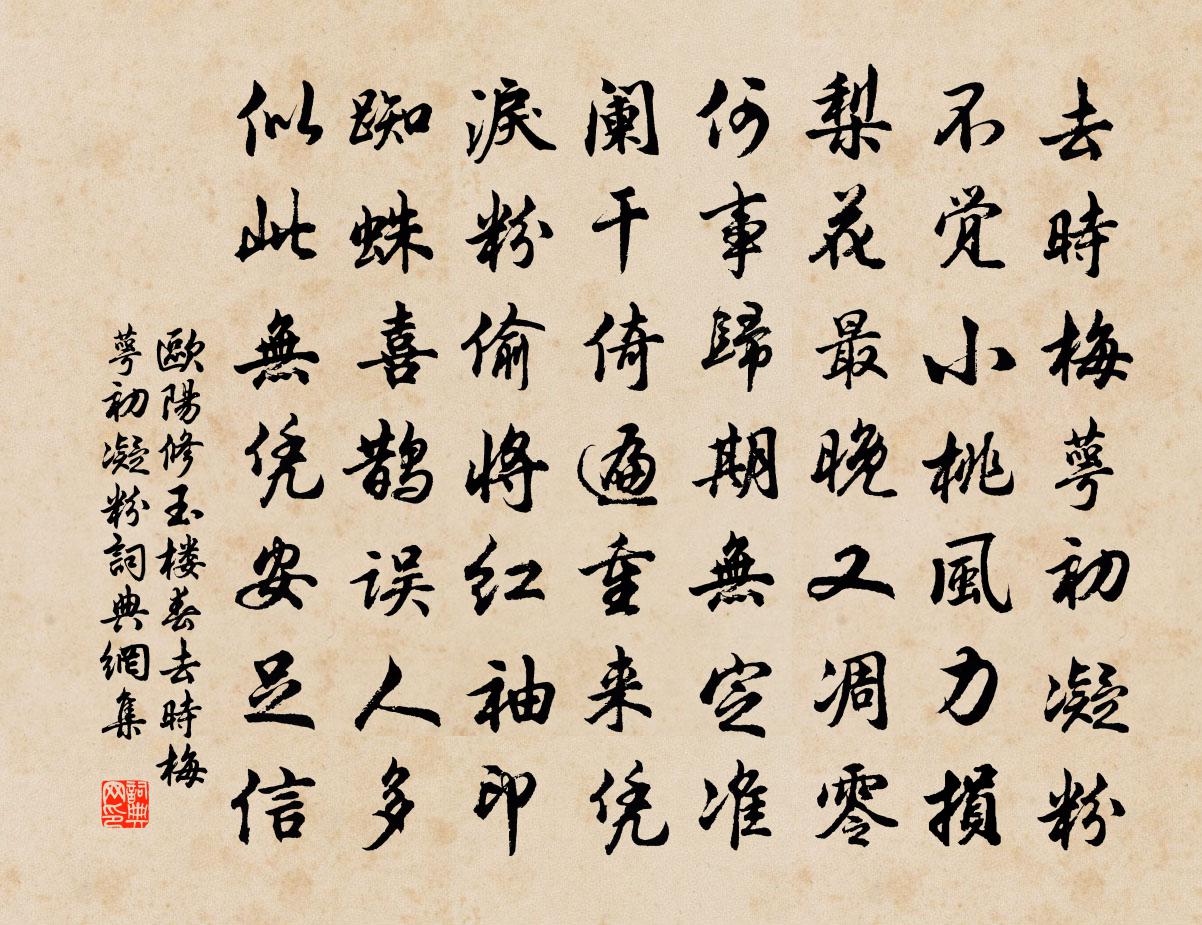 去時梅萼初凝粉
不觉小桃風力損
梨花最晚又凋零
何事歸期無定准
阑干倚遍重来凭
淚粉偷將红袖印
蜘蛛喜鹊误人多
似此無凭安足信
歐陽修玉楼春去時梅
萼初凝粉詞典網集
詞典
网印